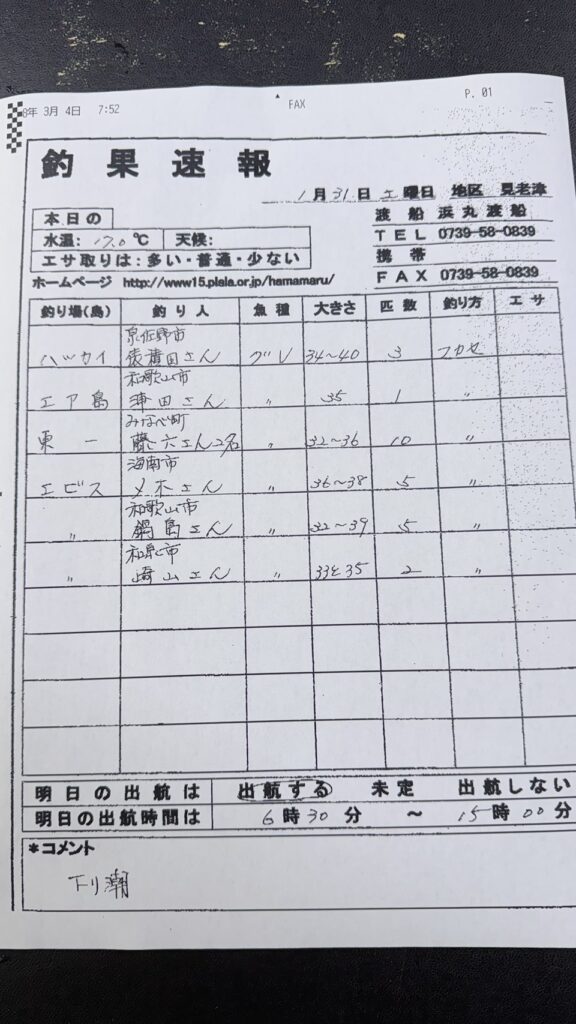 8年 3月 4日 7:52 FAX P. 01
釣果速報
1月31日 土曜日 地区 見老津
本日の
水温: 17.0℃ 天候:
エサ取りは:多い・普通・少ない
渡船 浜丸渡船
TEL 0739-58-0839
携帯
FAX 0739-58-0839
ホームページ http://www15.plala.or.jp/hamamaru/
釣り場(島) 釣り人 魚種 大きさ 匹数 釣り方 エサ
泉佐野市
ハツカイ さん グレ 34〜40 3 フカセ
和歌山市
エア島 津田さん 〃 35 1 〃
みなべ町
東一 藤六さん2名 〃 32〜36 10 〃
海南市
エビス 〆木さん 〃 36〜38 5 〃
和歌山市
〃 鍋島さん 〃 32〜39 5 〃
和泉市
〃 崎山さん 〃 33と35 2 〃
明日の出航は 出航する 未定 出航しない
明日の出航時間は 6時30分 〜 15時00分
*コメント
下り潮